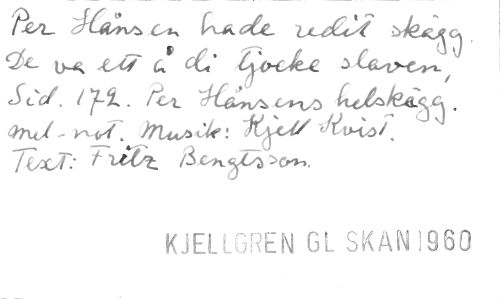 Per Hånsen hade redit skägg.
De va ett å di tjocke slaven,
Sid. 172. Per Hånsens helskägg.
mel-not. Musik: Kjell Kvist.
Text: Fritz Bengtsson.
KJELLGREN GL SKAN 1960